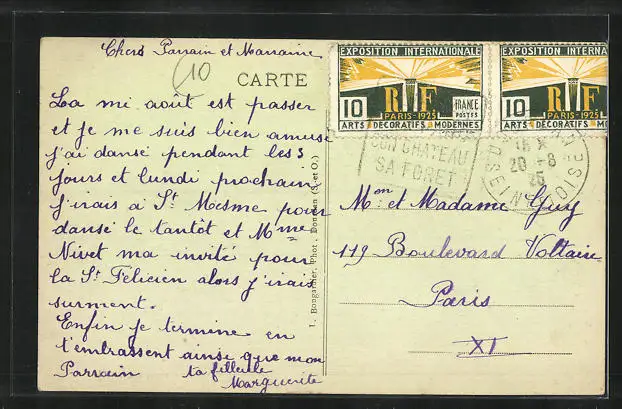 Chers Parrain et Marraine
10
CARTE
La mi août est passer
et je me suis bien amusé
j'ai dansé pendant les 3
jours et lundi prochain
j'irais à St Mesme pour
dansé le tantôt et Mme
Nivet ma invité pour
la St Félicien alors j'irais
surment.
Enfin je termine en
t'embrassent ainsi que mon
Parrain ta filleule
Marguerite
I. Bougardier, Phot., Dourdan (S.-et-O.)
EXPOSITION INTERNATIONALE
10 RF FRANCE
PARIS-1925 POSTES
ARTS DÉCORATIFS MODERNES
EXPOSITION INTERNATIONALE
10 RF
PARIS-1925
ARTS DÉCORATIFS MO
SON CHATEAU
SA FORET
20 -8
25
SEINE
OISE
Mon et Madame Guy
119 Boulevard Voltaire
Paris
XI